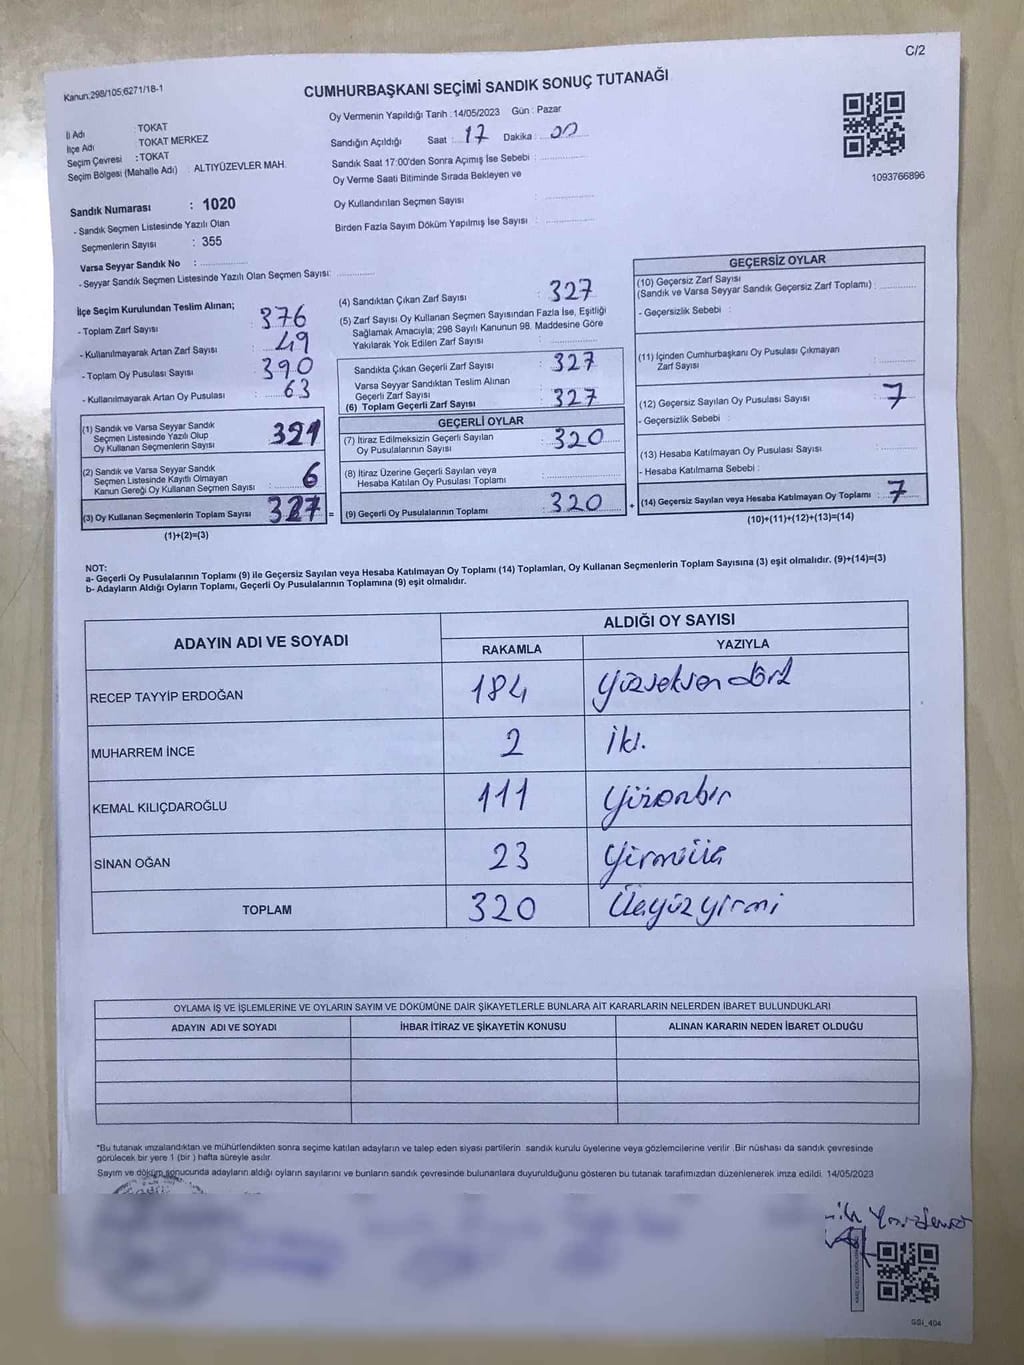 C/2
Kanun:298/105;6271/18-1
CUMHURBAŞKANI SEÇİMİ SANDIK SONUÇ TUTANAĞI
İl Adı : TOKAT
İlçe Adı : TOKAT MERKEZ
Seçim Çevresi : TOKAT
Seçim Bölgesi (Mahalle Adı) : ALTIYÜZEVLER MAH.
Sandık Numarası : 1020
- Sandık Seçmen Listesinde Yazılı Olan
Seçmenlerin Sayısı : 355
Varsa Seyyar Sandık No :
- Seyyar Sandık Seçmen Listesinde Yazılı Olan Seçmen Sayısı:
Oy Vermenin Yapıldığı Tarih : 14/05/2023 Gün : Pazar
Sandığın Açıldığı Saat : 17 Dakika : 00
Sandık Saat 17:00'den Sonra Açımış İse Sebebi :
Oy Verme Saati Bitiminde Sırada Bekleyen ve
Oy Kullandırılan Seçmen Sayısı :
Birden Fazla Sayım Döküm Yapılmış İse Sayısı :
1093766896
İlçe Seçim Kurulundan Teslim Alınan;
- Toplam Zarf Sayısı : 376
- Kullanılmayarak Artan Zarf Sayısı : 49
- Toplam Oy Pusulası Sayısı : 390
- Kullanılmayarak Artan Oy Pusulası : 63
(1) Sandık ve Varsa Seyyar Sandık
Seçmen Listesinde Yazılı Olup
Oy Kullanan Seçmenlerin Sayısı 321
(2) Sandık ve Varsa Seyyar Sandık
Seçmen Listesinde Kayıtlı Olmayan
Kanun Gereği Oy Kullanan Seçmen Sayısı : 6
(3) Oy Kullanan Seçmenlerin Toplam Sayısı 327 =
(1)+(2)=(3)
(4) Sandıktan Çıkan Zarf Sayısı : 327
(5) Zarf Sayısı Oy Kullanan Seçmen Sayısından Fazla İse, Eşitliği
Sağlamak Amacıyla; 298 Sayılı Kanunun 98. Maddesine Göre
Yakılarak Yok Edilen Zarf Sayısı :
Sandıkta Çıkan Geçerli Zarf Sayısı : 327
Varsa Seyyar Sandıktan Teslim Alınan
Geçerli Zarf Sayısı :
(6) Toplam Geçerli Zarf Sayısı : 327
GEÇERLİ OYLAR
(7) İtiraz Edilmeksizin Geçerli Sayılan
Oy Pusulasının Sayısı : 320
(8) İtiraz Üzerine Geçerli Sayılan veya
Hesaba Katılan Oy Pusulası Toplamı :
(9) Geçerli Oy Pusulalarının Toplamı : 320 +
GEÇERSİZ OYLAR
(10) Geçersiz Zarf Sayısı
(Sandık ve Varsa Seyyar Sandık Geçersiz Zarf Toplamı) :
- Geçersizlik Sebebi :
(11) İçinden Cumhurbaşkanı Oy Pusulası Çıkmayan
Zarf Sayısı :
(12) Geçersiz Sayılan Oy Pusulası Sayısı : 7
- Geçersizlik Sebebi :
(13) Hesaba Katılmayan Oy Pusulası Sayısı :
- Hesaba Katılmama Sebebi :
(14) Geçersiz Sayılan veya Hesaba Katılmayan Oy Toplamı : 7
(10)+(11)+(12)+(13)=(14)
NOT:
a- Geçerli Oy Pusulalarının Toplamı (9) ile Geçersiz Sayılan veya Hesaba Katılmayan Oy Toplamı (14) Toplamları, Oy Kullanan Seçmenlerin Toplam Sayısına (3) eşit olmalıdır. (9)+(14)=(3)
b- Adayların Aldığı Oyların Toplamı, Geçerli Oy Pusulalarının Toplamına (9) eşit olmalıdır.
ADAYIN ADI VE SOYADI ALDIĞI OY SAYISI
RAKAMLA YAZIYLA
RECEP TAYYİP ERDOĞAN 184 Yüzseksendört
MUHARREM İNCE 2 İki.
KEMAL KILIÇDAROĞLU 111 Yüzonbir
SİNAN OĞAN 23 Yirmiüç
TOPLAM 320 Üçyüzyirmi
OYLAMA İŞ VE İŞLEMLERİNE VE OYLARIN SAYIM VE DÖKÜMÜNE DAİR ŞİKAYETLERLE BUNLARA AİT KARARLARIN NELERDEN İBARET BULUNDUKLARI
ADAYIN ADI VE SOYADI İHBAR İTİRAZ VE ŞİKAYETİN KONUSU ALINAN KARARIN NEDEN İBARET OLDUĞU
*Bu tutanak imzalandıktan ve mühürlendikten sonra seçime katılan adayların ve talep eden siyasi partilerin sandık kurulu üyelerine veya gözlemcilerine verilir. Bir nüshası da sandık çevresinde
görülecek bir yere 1 (bir ) hafta süreyle asılır.
Sayım ve döküm sonucunda adayların aldığı oyların sayılarını ve bunların sandık çevresinde bulunanlara duyurulduğunu gösteren bu tutanak tarafımızdan düzenlenerek imza edildi. 14/05/2023
GSİ_404